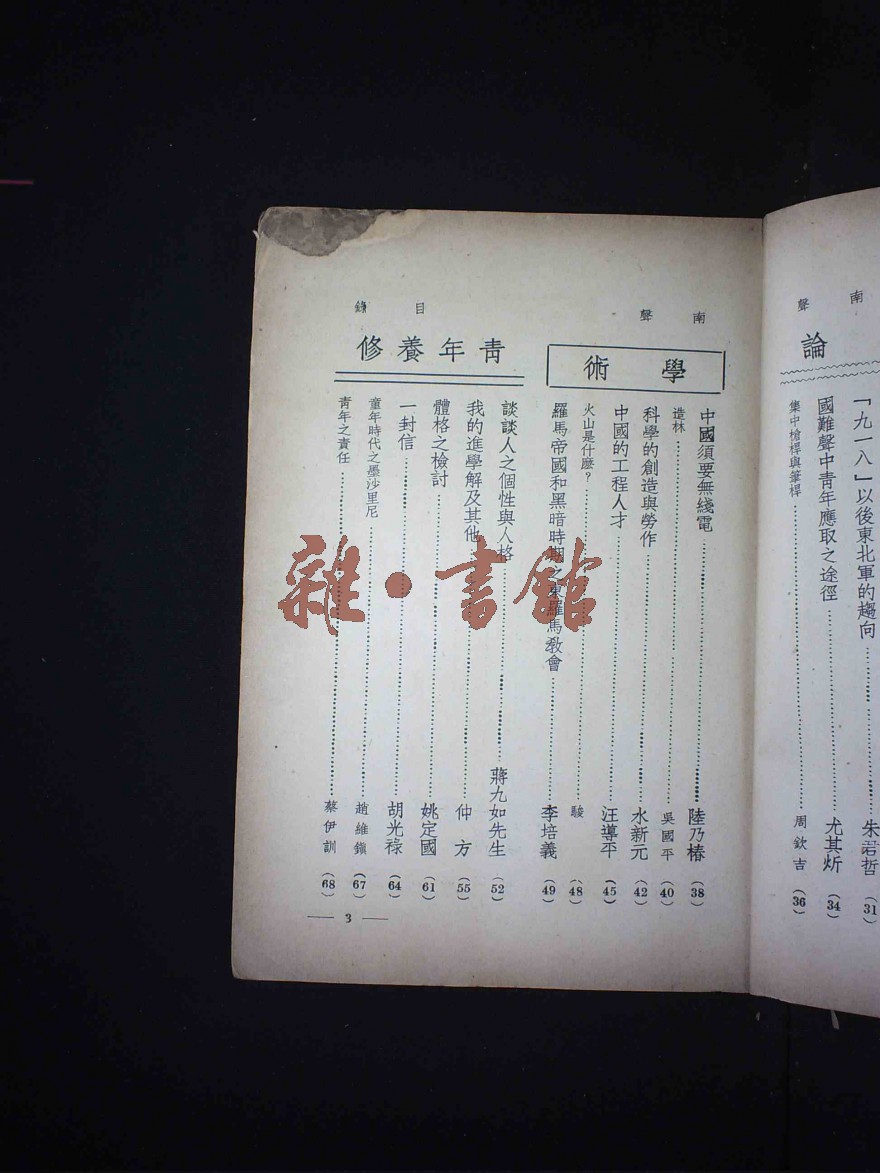 南聲
論
「九一八」以後東北軍的趨向……朱君哲 (31)
國難聲中青年應取之途徑……尤其炘 (34)
集中槍桿與筆桿……周欽吉 (36)
南聲 目錄
學術
中國須要無綫電……陸乃椿 (38)
造林……吳國平 (40)
科學的創造與勞作……水新元 (42)
中國的工程人才……汪導平 (45)
火山是什麼？……駿 (48)
羅馬帝國和黑暗時期之東羅馬教會……李培義 (49)
青年養修
談談人之個性與人格……蔣九如先生 (52)
我的進學解及其他……仲方 (55)
體格之檢討……姚定國 (61)
一封信……胡光祿 (64)
童年時代之墨沙里尼……趙維鎭 (67)
青年之責任……蔡伊訓 (68)
— 3 —
雜·書館